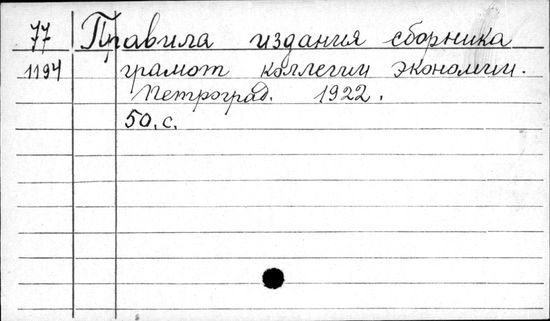 77 Правила издания сборника
1194 грамот коллегии экономии.
Петроград. 1922.
50. с.